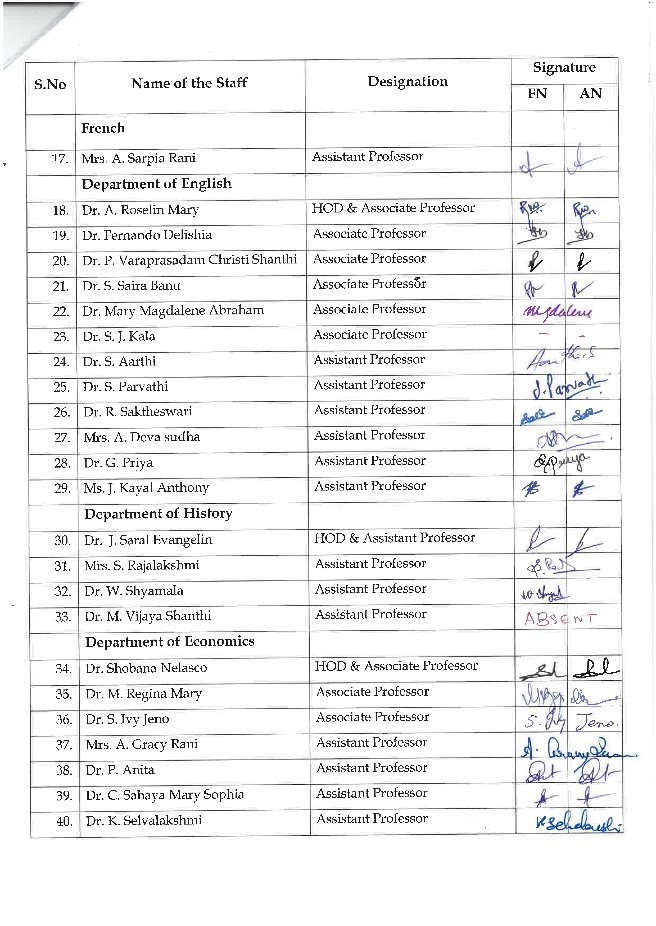 S.No Name of the Staff Designation Signature
FN AN
French
17. Mrs. A. Sarpia Rani Assistant Professor
Department of English
18. Dr. A. Roselin Mary HOD & Associate Professor
19. Dr. Fernando Delishia Associate Professor
20. Dr. P. Varaprasadam Christi Shanthi Associate Professor
21. Dr. S. Saira Banu Associate Professor
22. Dr. Mary Magdalene Abraham Associate Professor Magdalene
23. Dr. S. J. Kala Associate Professor - -
24. Dr. S. Aarthi Assistant Professor
25. Dr. S. Parvathi Assistant Professor
26. Dr. R. Saktheswari Assistant Professor
27. Mrs. A. Deva sudha Assistant Professor
28. Dr. G. Priya Assistant Professor G. Priya
29. Ms. J. Kayal Anthony Assistant Professor
Department of History
30. Dr. J. Saral Evangelin HOD & Assistant Professor
31. Mrs. S. Rajalakshmi Assistant Professor
32. Dr. W. Shyamala Assistant Professor
33. Dr. M. Vijaya Shanthi Assistant Professor ABSENT
Department of Economics
34. Dr. Shobana Nelasco HOD & Associate Professor
35. Dr. M. Regina Mary Associate Professor
36. Dr. S. Ivy Jeno Associate Professor S. Ivy Jeno.
37. Mrs. A. Gracy Rani Assistant Professor
38. Dr. P. Anita Assistant Professor
39. Dr. C. Sahaya Mary Sophia Assistant Professor
40. Dr. K. Selvalakshmi Assistant Professor